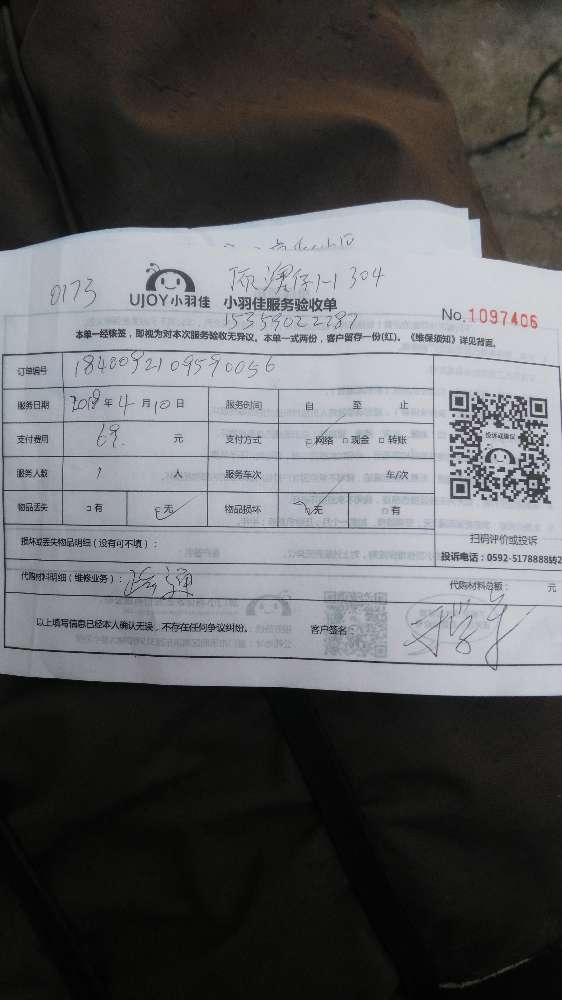 0173
304
UJOY小羽佳 小羽佳服务验收单
No.1097406
15359022787
本单一经核签，即视为对本次服务验收无异议。本单一式两份，客户留存一份(红)。《维保须知》详见背面。
订单编号 1840092109590056
服务日期 2018年4月10日 服务时间 自 至 止
支付费用 69. 元 支付方式 □网络 □现金 □转账
服务人数 1 人 服务车次 车/次
物品丢失 □有 □无 物品损坏 □无 □有
投诉或建议
扫码评价或投诉
投诉电话：0592-5178888转2
损坏或丢失物品明细（没有可不填）：
代购材料明细（维修业务）： 代购材料总额： 元
以上填写信息已经本人确认无误，不存在任何争议纠纷。 客户签名：